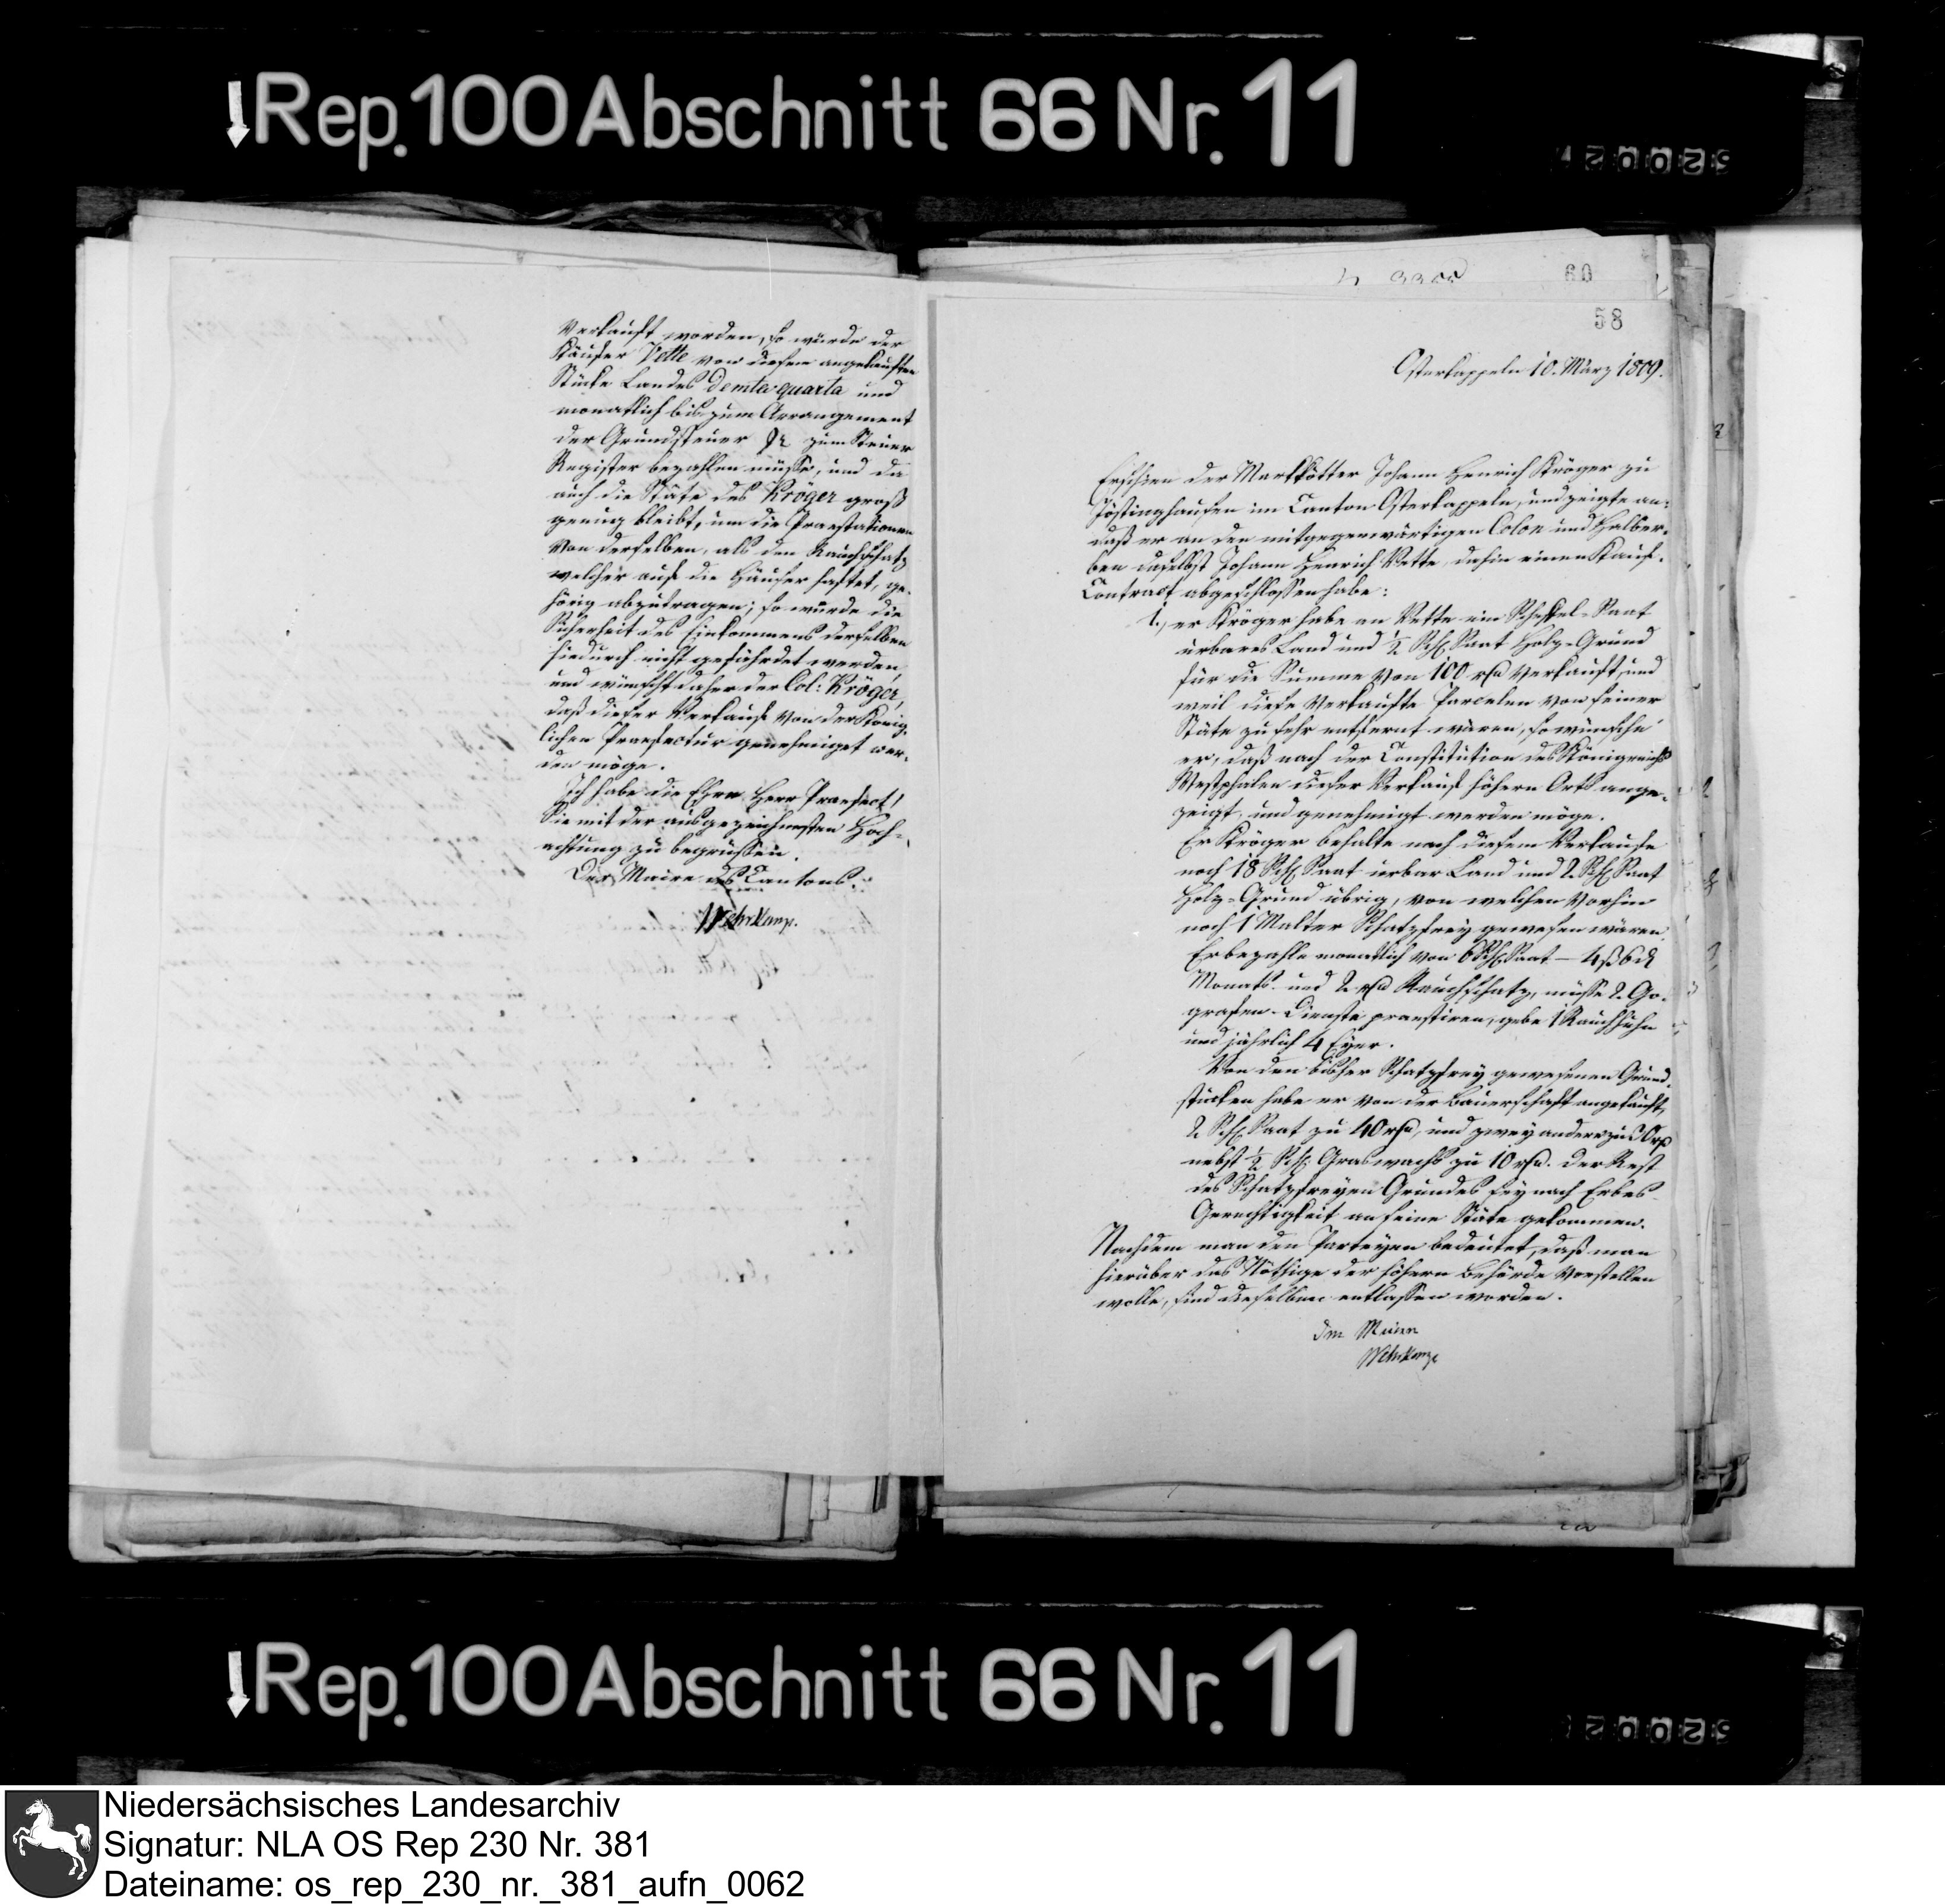 Rep. 100 Abschnitt 66 Nr. 11
verkauft worden, so würde der
Käufer Vette von diesem angekauften
Stücke Landes demta quarta und
monatlich bis zum Arrangement
der Grundsteuer zum Steuer
Register bezahlen müsse, und da
auch die Stäte des Kröger groß
genung bleibt, um die Praestationen
von derselben, als den Rauchschatz
welcher auf die Häuser haftet, ge-
hörig abzutragen; so würde die
Sicherheit des Einkommens derselben
hiedurch nicht gefährdet werden,
und wünscht daher der Col: Kröger,
daß dieser Verkauf von der König-
lichen Praefectur genehmiget wer-
den möge.
Ich habe die Ehre Herr Praefect!
Sie mit der ausgezeichnesten Hoch-
achtung zu begrüssen.
Der Maire des Cantons.
Wehrkamp.
60
58
Osterkappeln 10. März 1809.
Erschien der Markkötter Johann Henrich Kröger zu
Jöstinghausen im Canton Osterkappeln, und zeigte an:
daß er an den mitgegenwärtigen Colon und Halber-
ben daselbst Johann Henrich Vette, dahin einen Kauf-
Contract abgeschlossen habe:
1., er Kröger habe an Vette ein Scheffel-Saat
urbares Land und ½ Schf. Saat Holz-Grund
für die Summe von 100 rth verkauft, und
weil diese verkaufte Parcelen von seiner
Stäte zu sehr entfernt wären, so wünsche
er, daß nach der Constitution des Königreichs
Westphalen dieser Verkauf höhern Orts ange-
zeigt, und genehmigt werden möge.
Er Kröger behalte nach diesem Verkaufe
noch 18 Schf. Saat urbar Land und 2 Schf. Saat
Holz-Grund übrig, von welchen vorhin
noch 1 Malter Schatzfrey gewesen wären.
Er bezahle monatlich von 6 Schf. Saat — 4 ß 6 d
Monats- und 2 rth Rauchschatz, müsse 2 Go-
grafen-Dienste praestiren, gebe 1 Rauchhuhn
und jährlich 4 Eyer.
Von den bisher Schatzfrey gewesenen Grund-
stücken habe er von der Bauerschaft angekauft,
2 Schf. Saat zu 40 rth, und zwey andere zu
nebst ½ Schf. Graswachs zu 10 rth. Der Rest
des Schatzfreyen Grundes sey nach Erbes-
Gerechtigkeit an seine Stäte gekommen.
Nachdem man den Parteyen bedeutet, daß man
hierüber das Nöthige der höhern Behörde vorstellen
wolle, sind dieselben entlassen worden.
Der Maire
Wehrkamp
Rep. 100 Abschnitt 66 Nr. 11
Niedersächsisches Landesarchiv
Signatur: NLA OS Rep 230 Nr. 381
Dateiname: os_rep_230_nr._381_aufn_0062